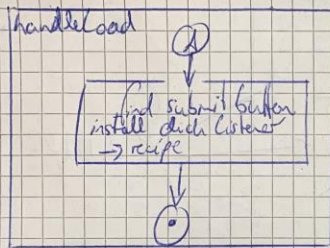 handleLoad
find submit button
install click listener
→ recipe